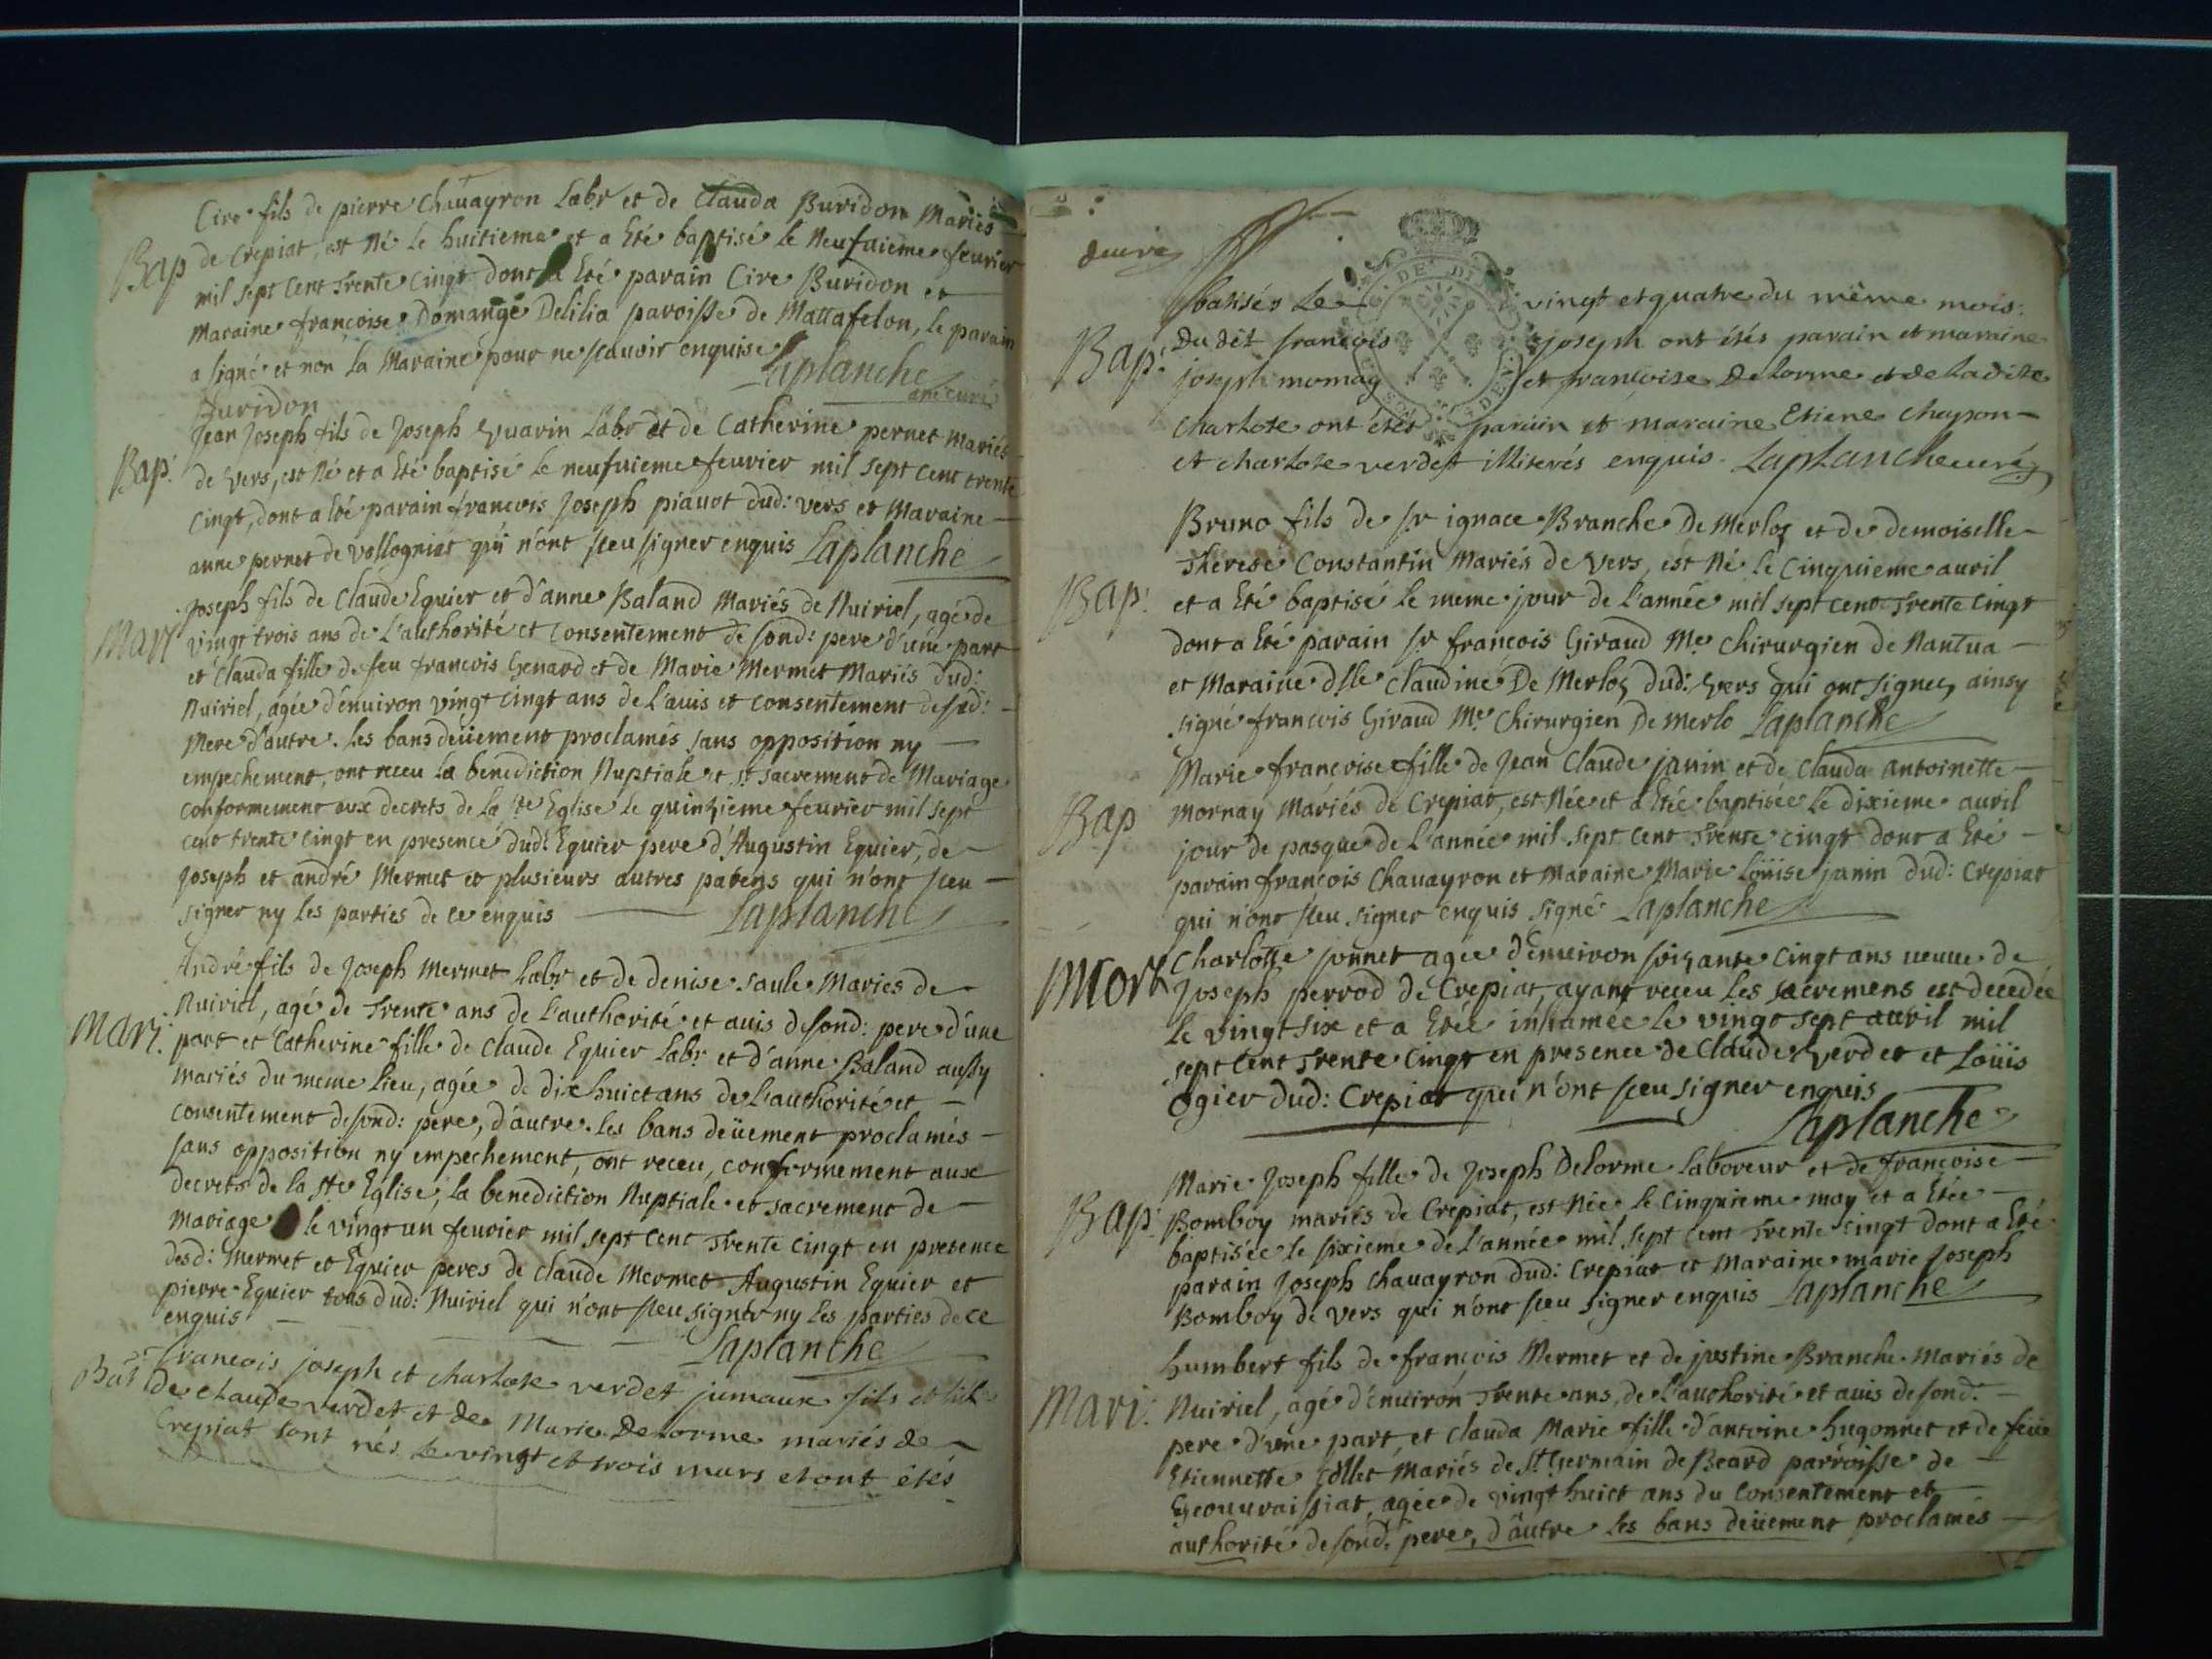 Cire fils de pierre Chavayron Labr et de Clauda Buridon Mariés
Bap de Crepiat, est Né le huitieme et a Eté baptisé le Neufuieme feurier
mil sept Cent Trente Cingt dont a Eté parain Cire Buridon et
Maraine francoise Domange Delilia paroisse de Mattafelon, le parain
a signé et non la Maraine pour ne scauoir enquise Laplanche
Buridon curé
Jean Joseph fils de Joseph Guarin Labr et de Catherine pernet mariés
Bap: de Vers, est Né et a Eté baptisé le neufuieme feurier mil sept cent trente
Cingt, dont a Eté parain francois Joseph piauot dud: vers et Maraine
anne pernet de vollogniat qui n'ont sceu signer enquis Laplanche
Joseph fils de Claude Eguier et d'anne Baland Mariés de Nuiriel, agé de
Mary vingt trois ans de L'authorité et Consentement de sond: pere d'une part
et Clauda fille de feu francois Genard et de Marie Mermet Mariés dud:
Nuiriel, agée d'enuiron vingt cingt ans de L'auis et consentement de sad:
Mere d'autre. les bans deüement proclamés sans opposition ny
empechement, ont receu la benediction Nuptiale et st sacrement de Mariage
Conformement aux decrets de la Ste Eglise le quinzieme feurier mil sept
cent trente cingt en presence dud: Eguier pere d'Augustin Eguier, de
Joseph et andré Mermet et plusieurs autres parens qui n'ont sceu
signer ny les parties de ce enquis Laplanche
André fils de Joseph Mermet Labr et de denise Saule Maries de
Nuiriel, agé de Trente ans de L'authorité et auis de sond: pere d'une
Mari: part et Catherine fille de Claude Eguier Labr et d'anne Baland aussy
mariés du meme lieu, agée de dix huict ans de L'authorité et
consentement de sond: pere, d'autre. les bans deüement proclamés
sans opposition ny empechement, ont receu, conformement aux
decrets de la Ste Eglise, la benediction Nuptiale et sacrement de
mariage le vingt un feurier mil sept cent Trente cingt en presence
desd: Mermet et Eguier peres de Claude Mermet Augustin Eguier et
pierre Eguier tous dud: Nuiriel qui n'ont sceu signer ny les parties de ce
enquis
Laplanche
francois joseph et charlote verdet jumaux fils et fille
Bat de claude verdet et de Marie Delorme mariés de
Crepiat sont nés le vingt et trois mars et ont étés
batisés le vingt et quatre du même mois.
Bap: Du dit francois joseph ont étés parain et maraine
joseph mornay et francoise Delorme et de la dite
charlote ont étés parain et maraine Etiene chayron
et charlote verdet illiterés enquis. Laplanche curé
Bruno fils de sr ignace Branche De Merloz et de demoiselle
Therese Constantin Mariés de Vers, est Né le Cinquieme auril
Bap: et a Eté baptisé le meme jour de l'année mil sept cent Trente Cingt
dont a Eté parain sr francois Giraud Me Chirurgien de Nantua
et Maraine dlle Claudine De Merloz dud: Vers qui ont signez, ainsy
signé francois Giraud Me Chirurgien De Merlo Laplanche
Marie francoise fille de Jean Claude janin et de Clauda antoinette
Bap Mornay Mariés de Crepiat, est Née et a Eté baptisée le dixieme auril
jour de pasque de l'année mil sept cent Trente cingt dont a Eté
parain francois Chavayron et Maraine Marie Loüise janin dud: Crepiat
qui n'ont sceu signer enquis signé Laplanche
Mort Charlotte sonnet agée d'enuiron soixante Cingt ans ueuue de
Joseph perrod de Crepiat ayant receu les sacremens est decedée
le vingt six et a Etée inhumée le vingt sept auril mil
sept cent Trente Cingt en presence de Claude Verdet et Loüis
Ogier dud: Crepiat qui n'ont sceu signer enquis
Laplanche
Marie Joseph fille de Joseph Delorme Laboreur et de francoise
Bap: Bomboy mariés de Crepiat, est Née le cinquieme may et a Etée
baptisée le sixieme de l'année mil sept cent Trente Cingt dont a Eté
parain Joseph Chavayron dud: Crepiat et Maraine marie Joseph
Bomboy de vers qui n'ont sceu signer enquis Laplanche
humbert fils de françois Mermet et de justine Branche Mariés de
Mari: Nuiriel, agé d'enuiron Trente ans, de l'authorité et auis de sond:
pere d'une part, et Clauda Marie fille d'antoine hugonnet et de feüe
Etiennette Collet Mariés de St Germain de Beard parroisse de
Geouuraissiat, agée de vingt huict ans du Consentement et
authorité de sond: pere, d'autre les bans deüement proclamés